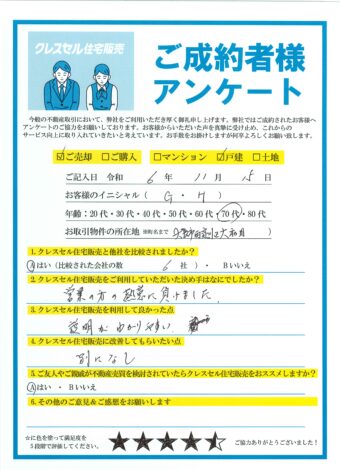 クレスセル住宅販売
ご成約者様
アンケート
今般の不動産取引において、弊社をご利用いただき厚く御礼申し上げます。弊社ではご成約されたお客様へ
アンケートのご協力をお願いしております。お客様からいただいた声を真摯に受け止め、これからの
サービス向上に取り入れていきたいと考えています。お手数をお掛けしますが何卒よろしくお願い致します。
☑ご売却 □ご購入 □マンション ☑戸建 □土地
ご記入日 令和 6年 11月 15日
お客様のイニシャル(G・H)
年齢:20代・30代・40代・50代・60代・70代・80代
お取引物件の所在地 ※町名まで
1.クレスセル住宅販売と他社を比較されましたか?
Aはい(比較された会社の数 6社)・ Bいいえ
2.クレスセル住宅販売をご利用していただいた決め手はなにでしたか?
営業の方の熱意に負けました
3.クレスセル住宅販売を利用して良かった点
説明がわかりやすい
4.クレスセル住宅販売に改善してもらいたい点
別になし
5.ご友人やご親戚が不動産売買を検討されていたらクレスセル住宅販売をおススメしますか?
Aはい ・ Bいいえ
6.その他のご意見&ご感想をお願いします
☆に色を塗って満足度を
5段階で評価してください。
★★★★
ご協力ありがとうございました!